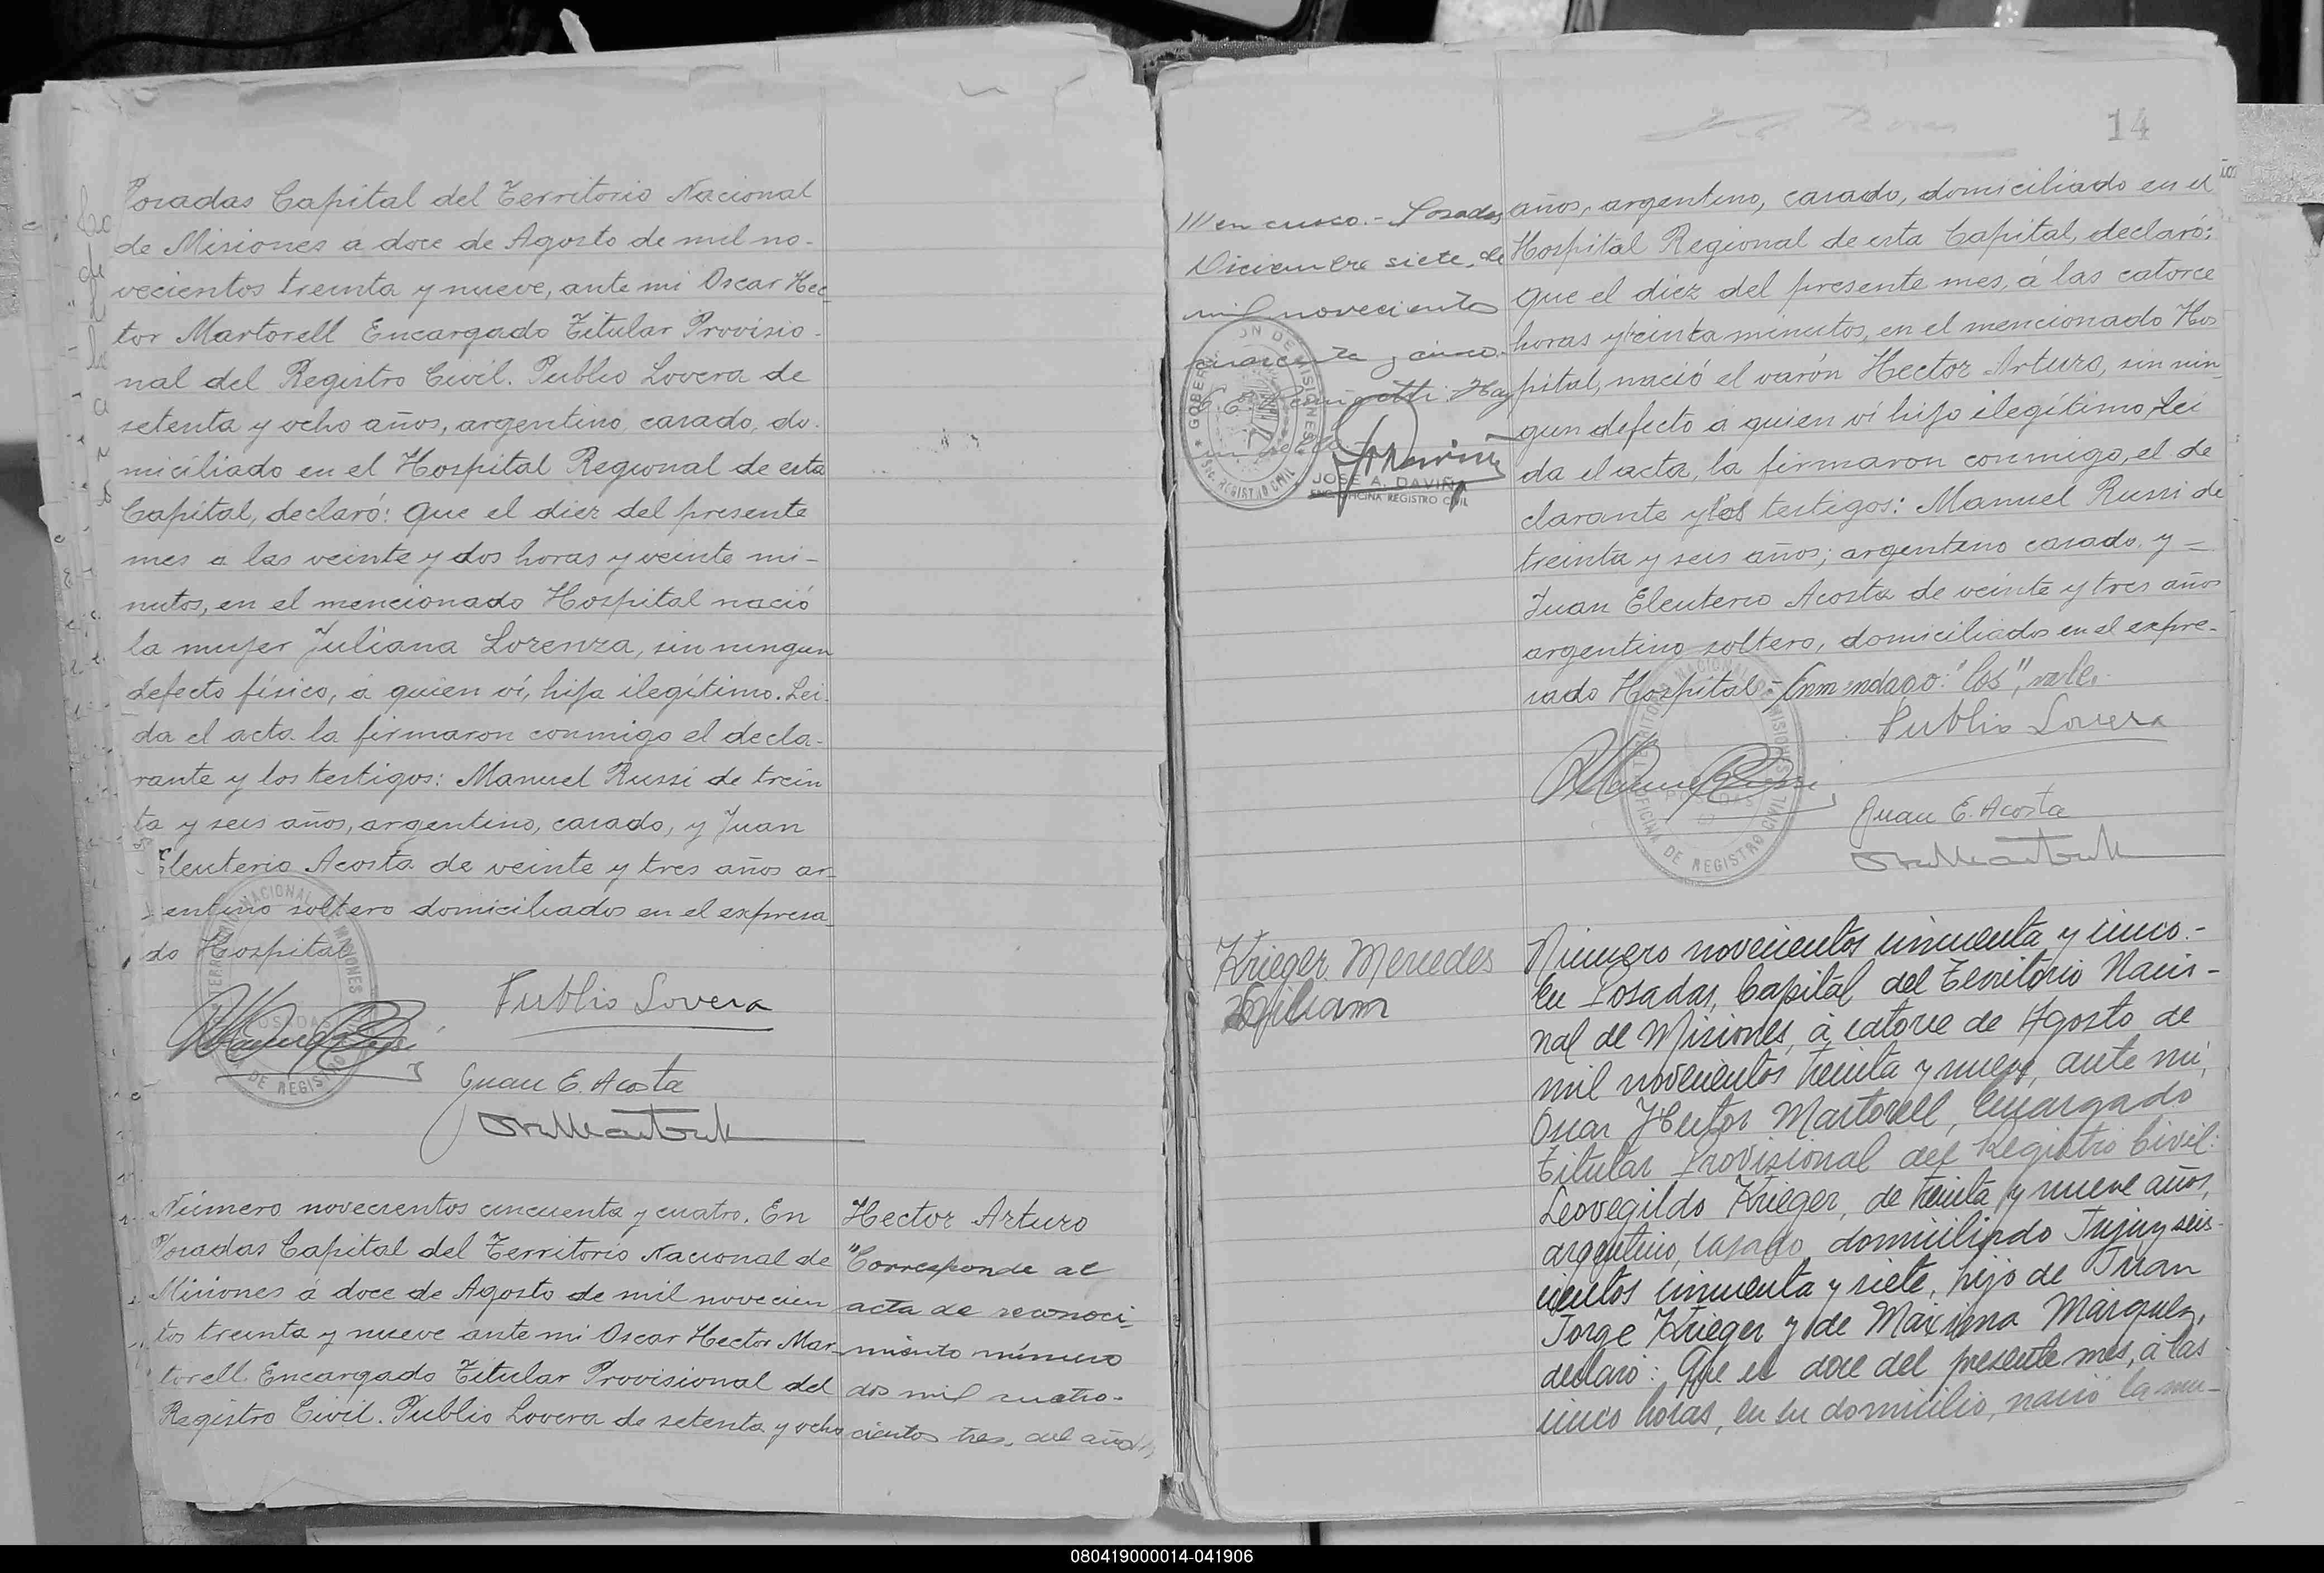 Posadas Capital del Territorio Nacional
de Misiones a doce de Agosto de mil no-
vecientos treinta y nueve, ante mi Oscar Hec-
tor Martorell Encargado Titular Provisio-
nal del Registro Civil. Publio Lovera de
setenta y ocho años, argentino, casado, do-
miciliado en el Hospital Regional de esta
Capital, declaró: Que el diez del presente
mes a las veinte y dos horas y veinte mi-
nutos, en el mencionado Hospital nació
la mujer Juliana Lorenza, sin ningun
defecto físico, á quien ví, hija ilegítimo. Lei-
da el acta la firmaron conmigo el decla-
rante y los testigos: Manuel Russi de trein
ta y seis años, argentino, casado, y Juan
Eleuterio Acosta de veinte y tres años ar-
entino soltero domiciliados en el expresa-
do Hospital
Publio Lovera
Juan E. Acosta
Número novecientos cincuenta y cuatro. En
Posadas Capital del Territorio Nacional de
Misiones á doce de Agosto de mil novecien
tos treinta y nueve ante mi Oscar Hector Mar-
torell Encargado Titular Provisional del
Registro Civil. Publio Lovera de setenta y ocho
Hector Arturo
"Corresponde al
acta de reconoci-
miento número
dos mil cuatro-
cientos tres, del año
14
/// en curso.- Posadas
Diciembre siete, de
mil novecientos
cuarenta y cinco.
Hay
GOBERNACION DE MISIONES
SEC. REGISTRO CIVIL
JOSE A. DAVIÑA
ENC. OFICINA REGISTRO CIVIL
años, argentino, casado, domiciliado en el
Hospital Regional de esta Capital, declaró:
Que el diez del presente mes, á las catorce
horas y treinta minutos, en el mencionado Hos
pital, nació el varón Hector Arturo, sin nin
gun defecto á quien ví hijo ilegítimo, Lei
da el acta, la firmaron conmigo, el de
clarante y los testigos: Manuel Russi de
treinta y seis años; argentino casado y =
Juan Eleuterio Acosta de veinte y tres años
argentino soltero, domiciliados en el expre-
sado Hospital.- Enmendado: "los", vale.
Publio Lovera
TERRITORIO NACIONAL DE MISIONES
POSADAS
OFICINA DE REGISTRO CIVIL
Juan E. Acosta
Krieger Mercedes
Lilliam
Número novecientos cincuenta y cinco.-
En Posadas, Capital del Territorio Nacio-
nal de Misiones, á catorce de Agosto de
mil novecientos treinta y nueve, ante mí,
Oscar Hector Martorell, Encargado
Titular Provisional del Registro Civil:
Leovegildo Krieger, de treinta y nueve años,
argentino, casado, domiciliado Jujuy seis-
cientos cincuenta y siete, hijo de Juan
Jorge Krieger y de Máxima Márquez,
declaró: Que el doce del presente mes, á las
cinco horas, en su domicilio, nació la mu-
080419000014-041906